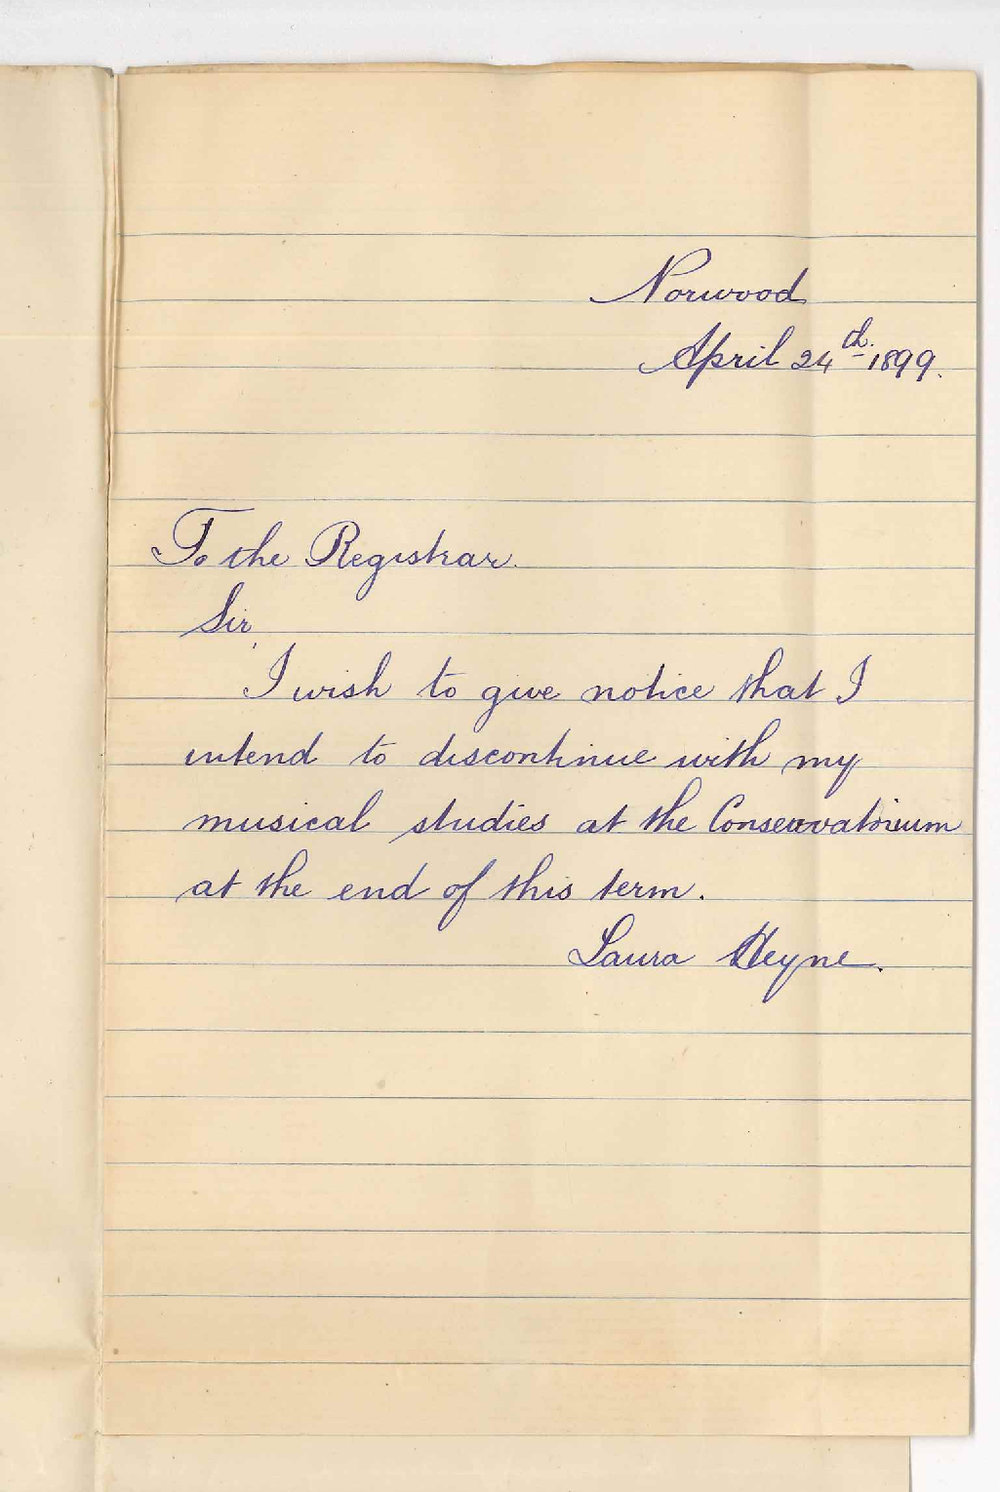 Norwood
April 24th. 1899.
To the Registrar.
Sir,
I wish to give notice that I
intend to discontinue with my
musical studies at the Conservatorium
at the end of this term.
Laura Heyne.